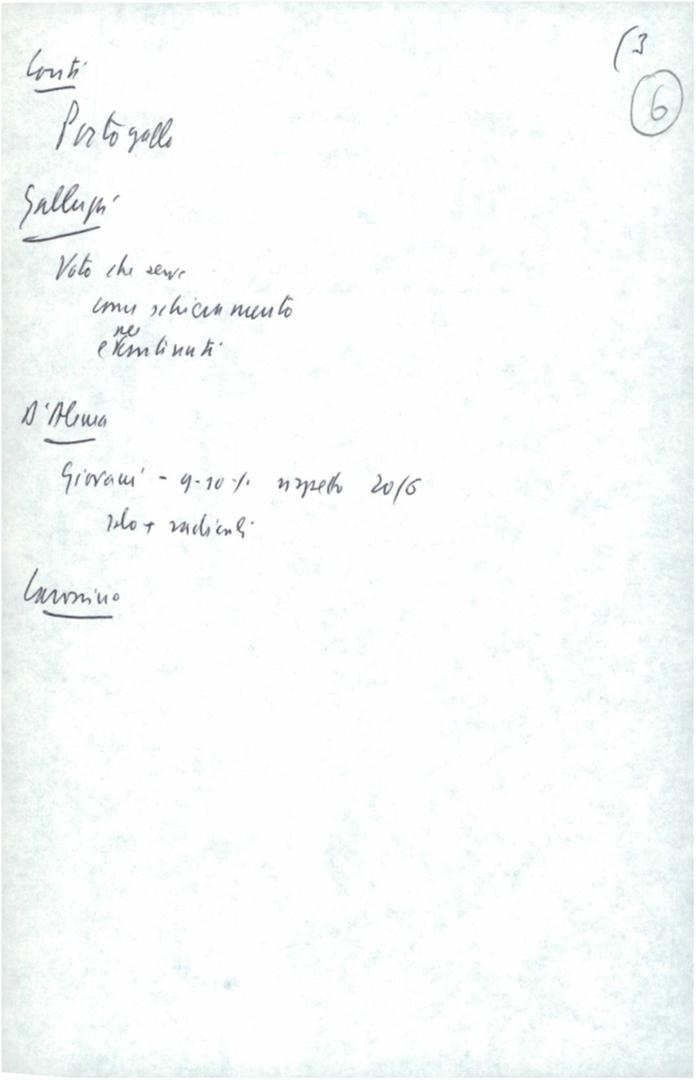 (3
6
Conti
Portogallo
Gallupi
Voto che serve
come schieramento
ne
D'Alema
Giovani - 9-10% rispetto
solo + radicali